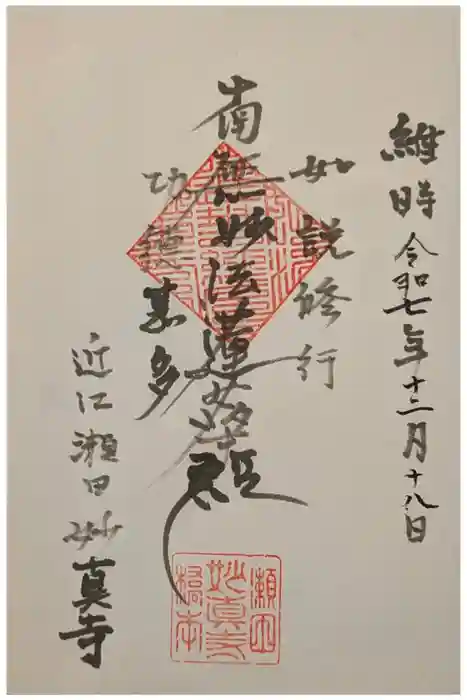 維時 令和七年十二月十八日
如説修行
南無妙法蓮華経
功徳甚多
近江瀬田妙真寺
瀬田
妙真寺
橋本